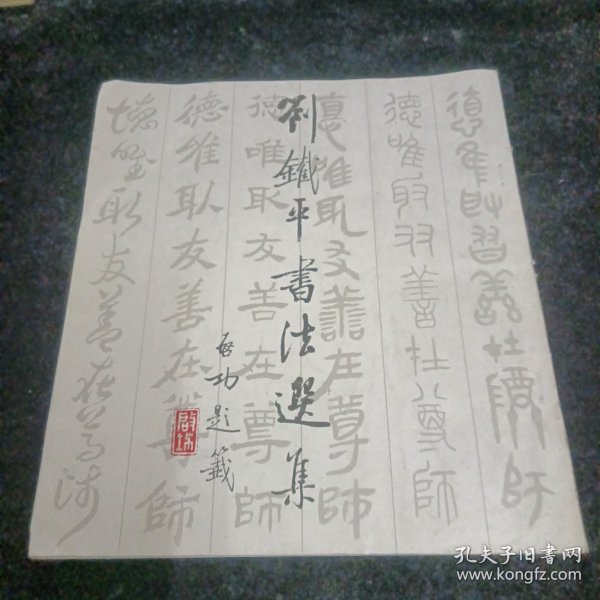 劉鐵平書法選集
启功題籤
啟功
德隹取友善在尊師
德唯取友善在尊師
德惟取友善在尊師
德唯取友善在尊師
德惟取友善在尊師
德惟取友善在尊师
孔夫子旧书网
www.kongfz.com